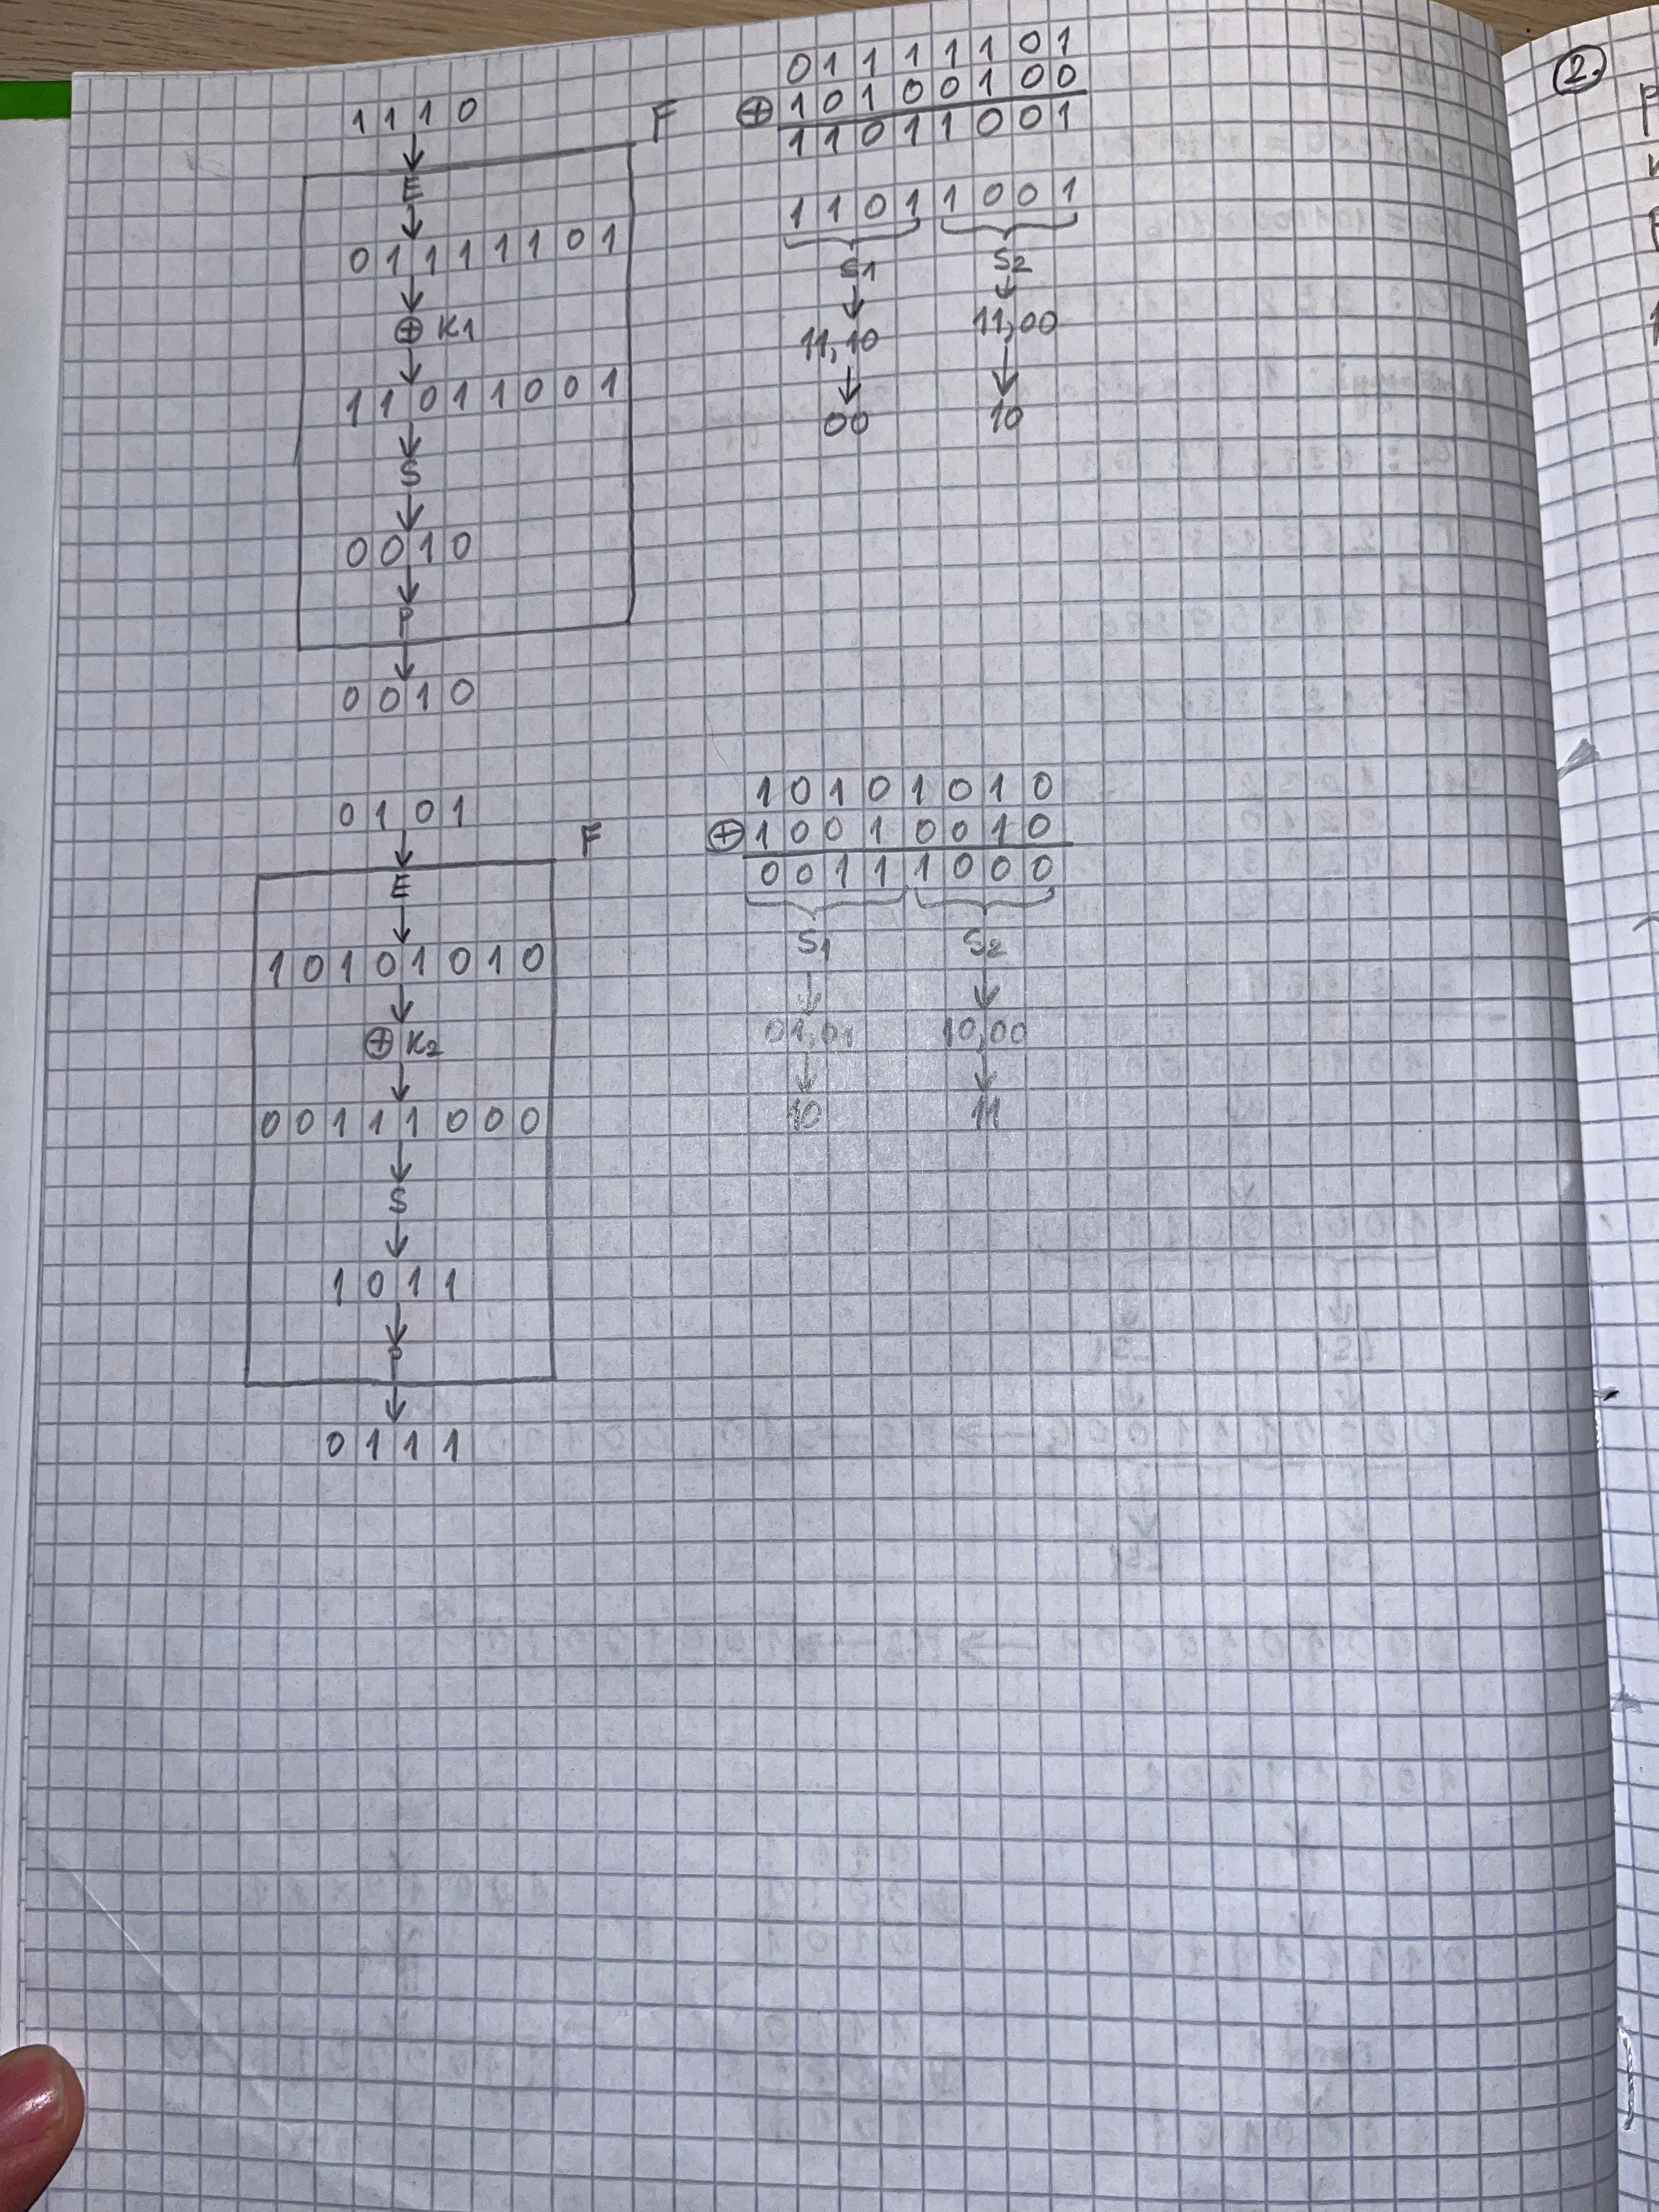 1 1 1 0
↓
F
E
↓
0 1 1 1 1 1 0 1
↓
⊕ K1
↓
1 1 0 1 1 0 0 1
↓
S
↓
0 0 1 0
↓
P
↓
0 0 1 0
0 1 1 1 1 1 0 1
⊕ 1 0 1 0 0 1 0 0
1 1 0 1 1 0 0 1
1 1 0 1 1 0 0 1
S1 S2
↓ ↓
11,10 11,00
↓ ↓
00 10
0 1 0 1
↓
F
E
↓
1 0 1 0 1 0 1 0
↓
⊕ K2
↓
0 0 1 1 1 0 0 0
↓
S
↓
1 0 1 1
↓
P
↓
0 1 1 1
1 0 1 0 1 0 1 0
⊕ 1 0 0 1 0 0 1 0
0 0 1 1 1 0 0 0
S1 S2
↓ ↓
01,01 10,00
↓ ↓
10 11
2.